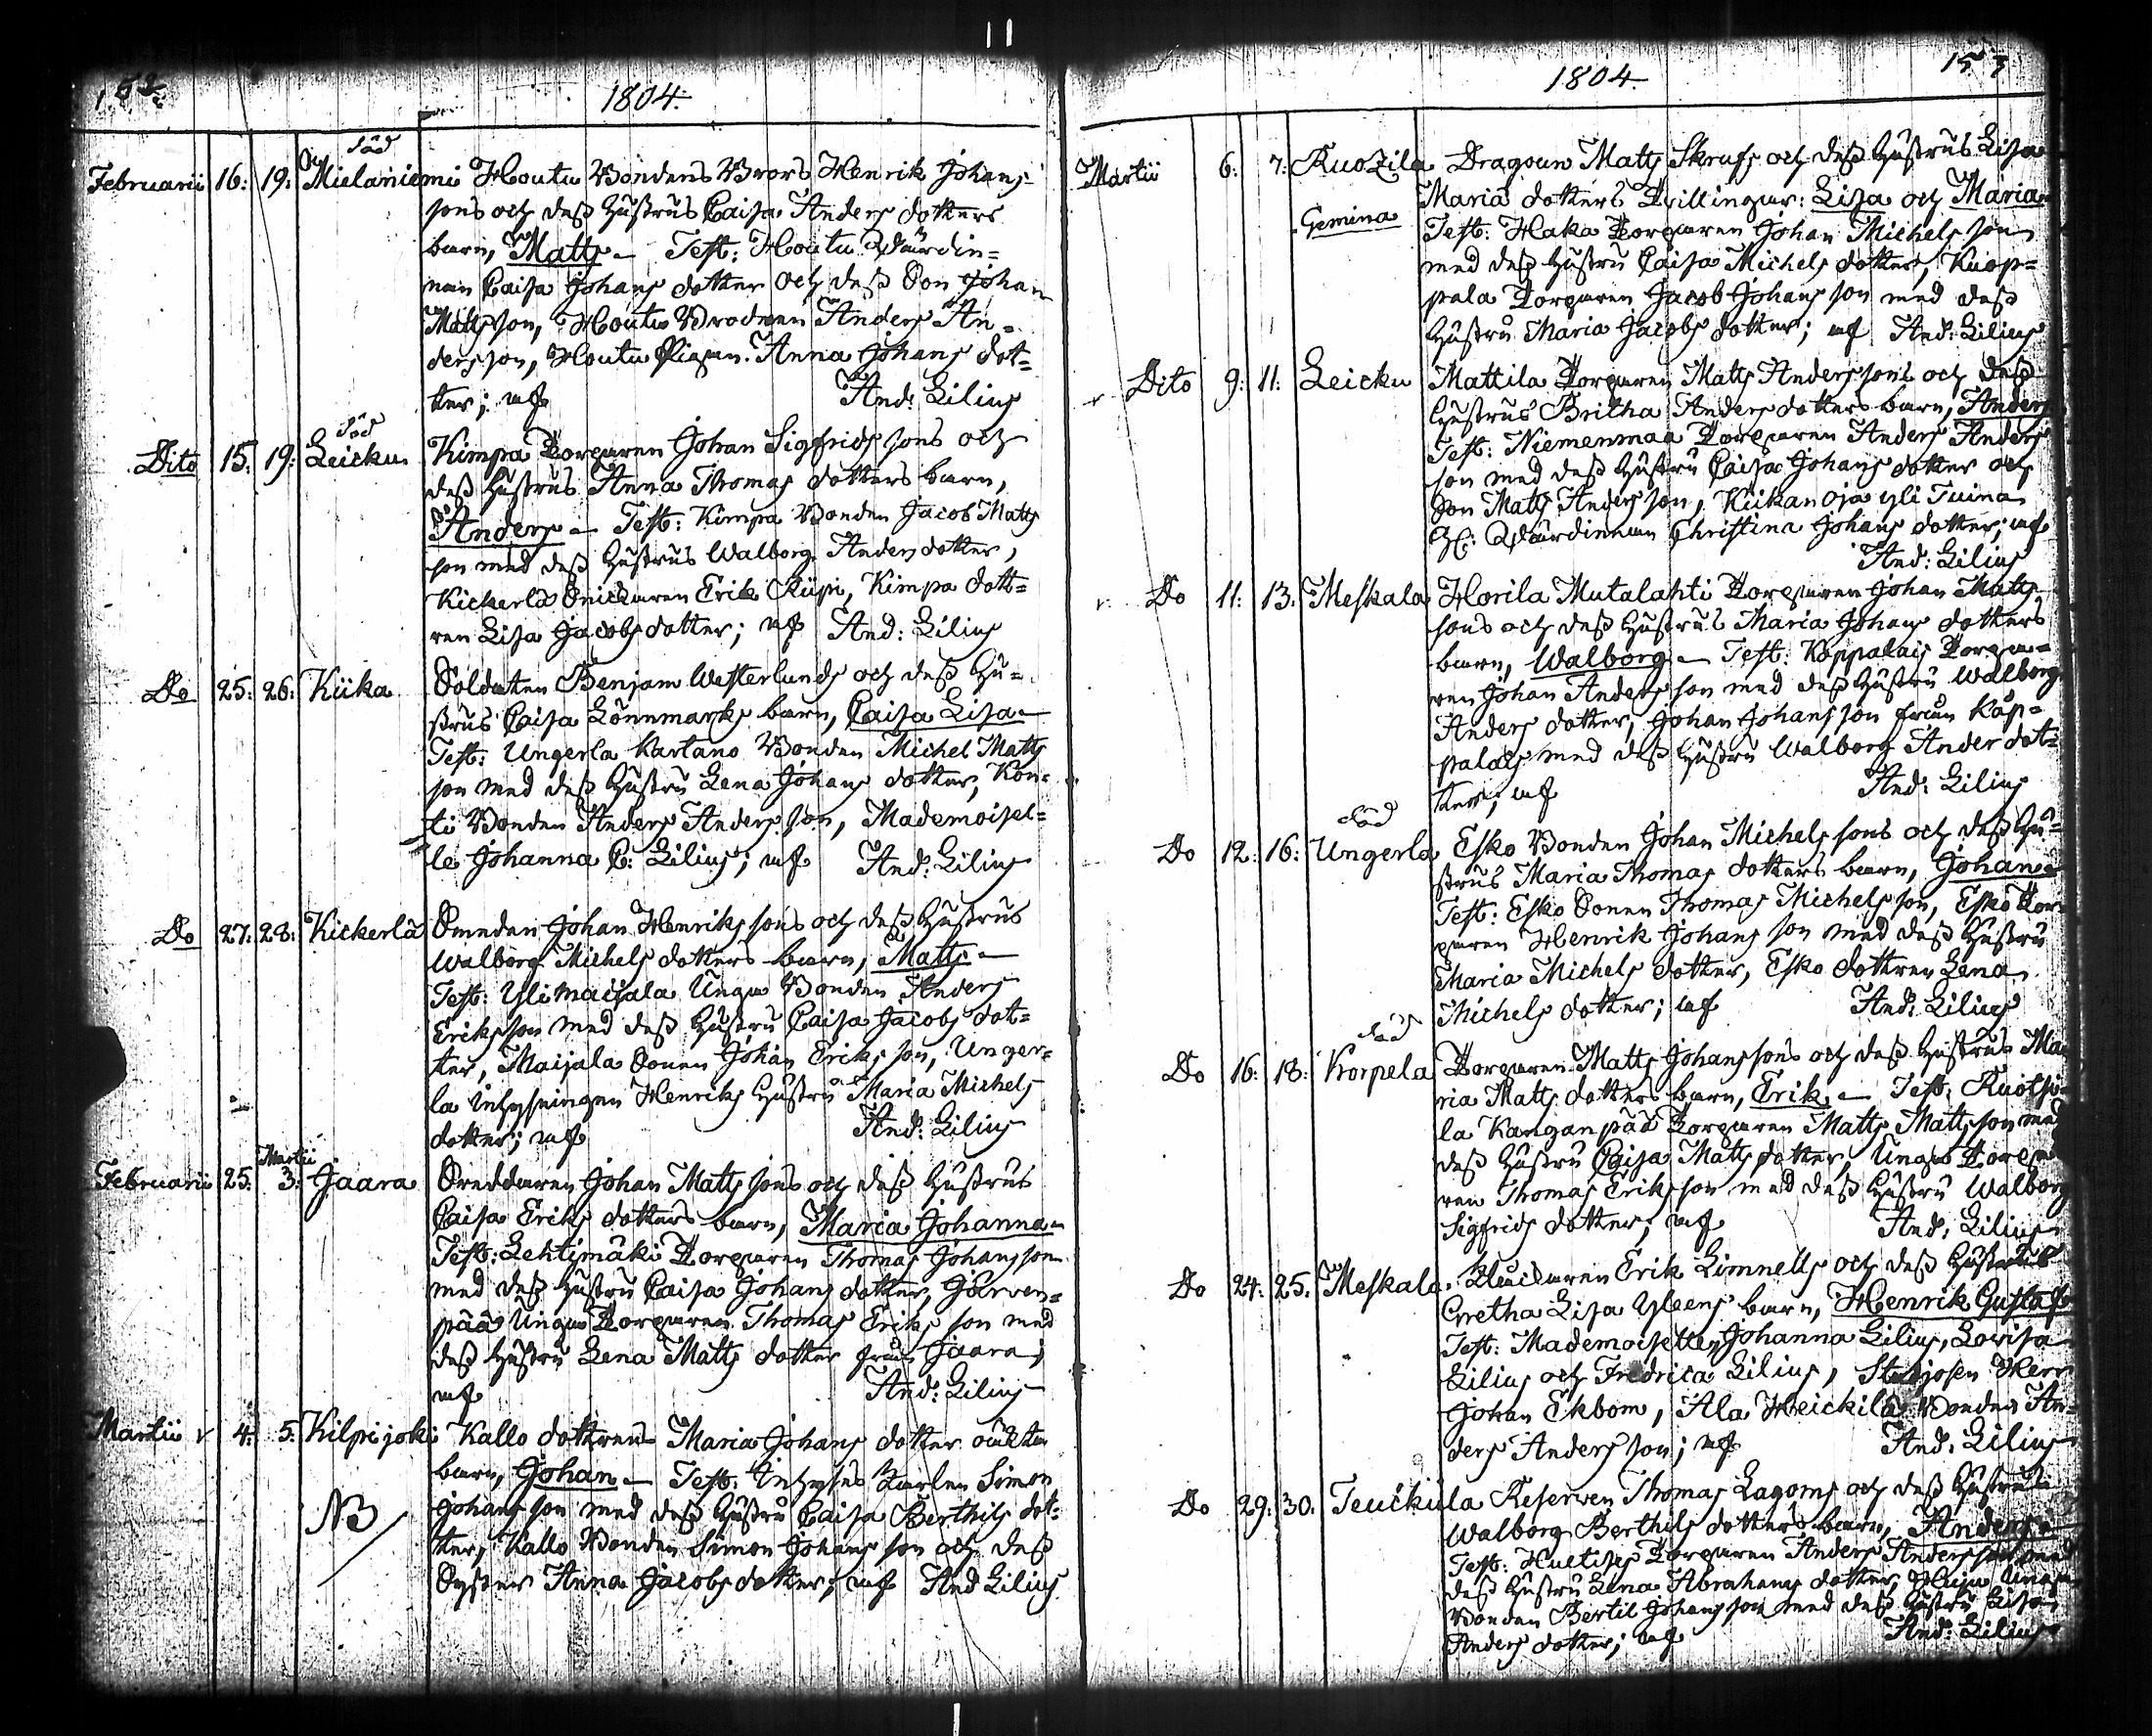 152.
1804.
död
Februarii 16: 19: Mielaniemi Houtu Bondens Brors Henrik Johans-
sons och dess Hustrus Caisa Anders dotters
barn, Matts - Test: Houtu Wärdin=
nan Caisa Johans dotter och dess Son Johan
Matts son, Houtu Brodren Anders An=
ders son, Houtu Pigan Anna Johans dot=
ter; af And: Lilius
död
Dito 15: 19: Leicku Kimpa Torparen Johan Sigfrids sons och
dess Hustrus Anna Thomas dotters barn,
Anders - Test: Kimpa Bonden Jacob Matts
son med dess Hustrus Walborg Anders dotter,
Kickerlä Snickaren Erik Riipi, Kimpa dott=
ren Lisa Jacobs dotter; af And: Lilius
Do 25: 26: Kiika Soldaten Benjam Westerlunds och dess Hu=
strus Caisa Lönnmarks barn, Caisa Lisa -
Test: Ungerla Kartano Bonden Michel Matts
son med dess Hustru Lena Johans dotter, Kon=
ti Bonden Anders Anders son, Mademoisel=
le Johanna C: Lilius; af And: Lilius
Do 27: 28: Kickerlä Smeden Johan Henriks sons och dess Hustrus
Walborg Michels dotters barn, Matts -
Test: Ylimaijala Unga Bonden Anders
Eriks son med dess Hustru Caisa Jacobs dot=
ter, Maijala Sonen Johan Eriks son, Unger=
la Inhysningen Henriks Hustru Maria Michels
dotter; af And: Lilius
Martii
Februarii 25: 3: Jaara Skeddaren Johan Matts sons och dess Hustrus
Caisa Eriks dotters barn, Maria Johanna -
Test: Lehtimäki Torparen Thomas Johans son
med dess Hustru Caisa Johans dotter, Järven=
pää Unga Torparen Thomas Eriks son med
dess Hustru Lena Matts dotter från Jaara;
af And: Lilius
Martii v 4: 5: Kilpijoki Kallo dottrens Maria Johans dotter oäkta
barn, Johan - Test: Inhyses Karlen Simon
NB Johans son med dess Hustru Caisa Berthils dot=
ter, Kallo Bonden Simon Johans son och dess
Syster Anna Jacobs dotter; af And Lilius
1804.
153
Martii 6: 7: Ruozila Dragoun Matts Skrufs och dess Hustrus Lisa
Maria dotters Tvillingar: Lisa och Maria
Gemina Test: Haka Torparen Johan Michels son
med dess Hustru Caisa Michels dotter, Knap=
pala Torparen Jacob Johans son med dess
Hustru Maria Jacobs dotter; af And: Lilius
Dito 9: 11: Leicku Mattila Torparen Matts Anders sons och dess
Hustrus Britha Anders dotters barn, Anders
Test: Niemenmaa Torparen Anders Anders
son med dess Hustru Caisa Johans dotter och
Son Matts Anders son, Kiikanoja yli Tuina
H: Wärdinnan Christina Johans dotter; af
And: Lilius
v. Do 11: 13. Meskala Horila Mutalahti Torparen Johan Matts
sons och dess Hustrus Maria Johans dotters
barn, Walborg - Test: Koppalais Torpa=
ren Johan Anders son med dess Hustru Walborg
Anders dotter, Johan Johans son från Kop=
palais med dess Hustru Walborg Ander dot=
ter; af And: Lilius
död
Do 12: 16: Ungerla Esko Bonden Johan Michels sons och dess Hu=
strus Maria Thomas dotters barn, Johan -
Test: Esko Sonen Thomas Michels son, Esko Tor=
paren Henrik Johans son med dess Hustru
Maria Michels dotter, Esko dottren Lena
Michels dotter; af And: Lilius
död
Do 16: 18: Korpela Torparen Matts Johans sons och dess Hustrus Ma
ria Matts dotters barn, Erik - Test: Ruotsi=
la Kanganpää Torparen Matts Matts son med
dess Hustru Caisa Matts dotter, Unga Torpa
ren Thomas Eriks son med dess Hustru Walborg
Sigfrids dotter; af And: Lilius
Do 24: 25. Meskala. Klockaren Erik Limnells och dess Hustrus
Gretha Lisa Yleens barn, Henrik Gustaf
Test: Mademoiseller Johanna Lilius, Lovisa
Lilius och Fredrica Lilius, Herr
Johan Ekbom, Ala Heickilä Bonden An=
ders Anders son; af And: Lilius
Do 29: 30: Teuckula Reserven Thomas Lagoms och dess Hustrus
Walborg Berthils dotters barn, Anders -
Test: Huetises Torparen Anders Anders son med
dess Hustru Lena Abrahams dotter, Unga
Bonden Bertil Johans son med dess Hustru Lisa
Anders dotter; af And: Lilius